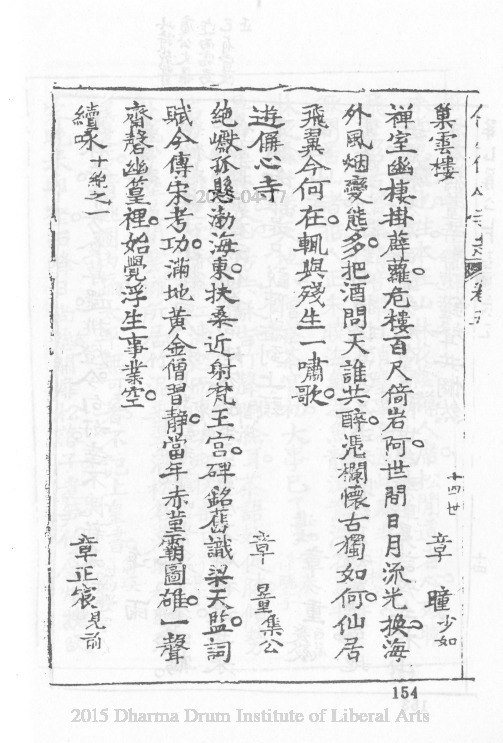 巢雲樓
十四世 章 曈少如
禪室幽棲掛薜蘿。危樓百尺倚岩阿。世間日月流光換。海
外風烟變態多。把酒問天誰共醉。凴欄懷古獨如何。仙居
飛翼今何在。輒與殘生一嘯歌。
遊偁心寺
章 集公
絕巘孤懸渤海東。扶桑近射梵王宮。碑銘舊識梁天監。詞
賦今傳宋考功。滿地黃金僧習靜。當年赤堇霸圖雄。一聲
齋磬幽篁裡。始覺浮生事業空。
續咏十絕之一
章正宸見前
卷五
154
2015-04-17
2015 Dharma Drum Institute of Liberal Arts